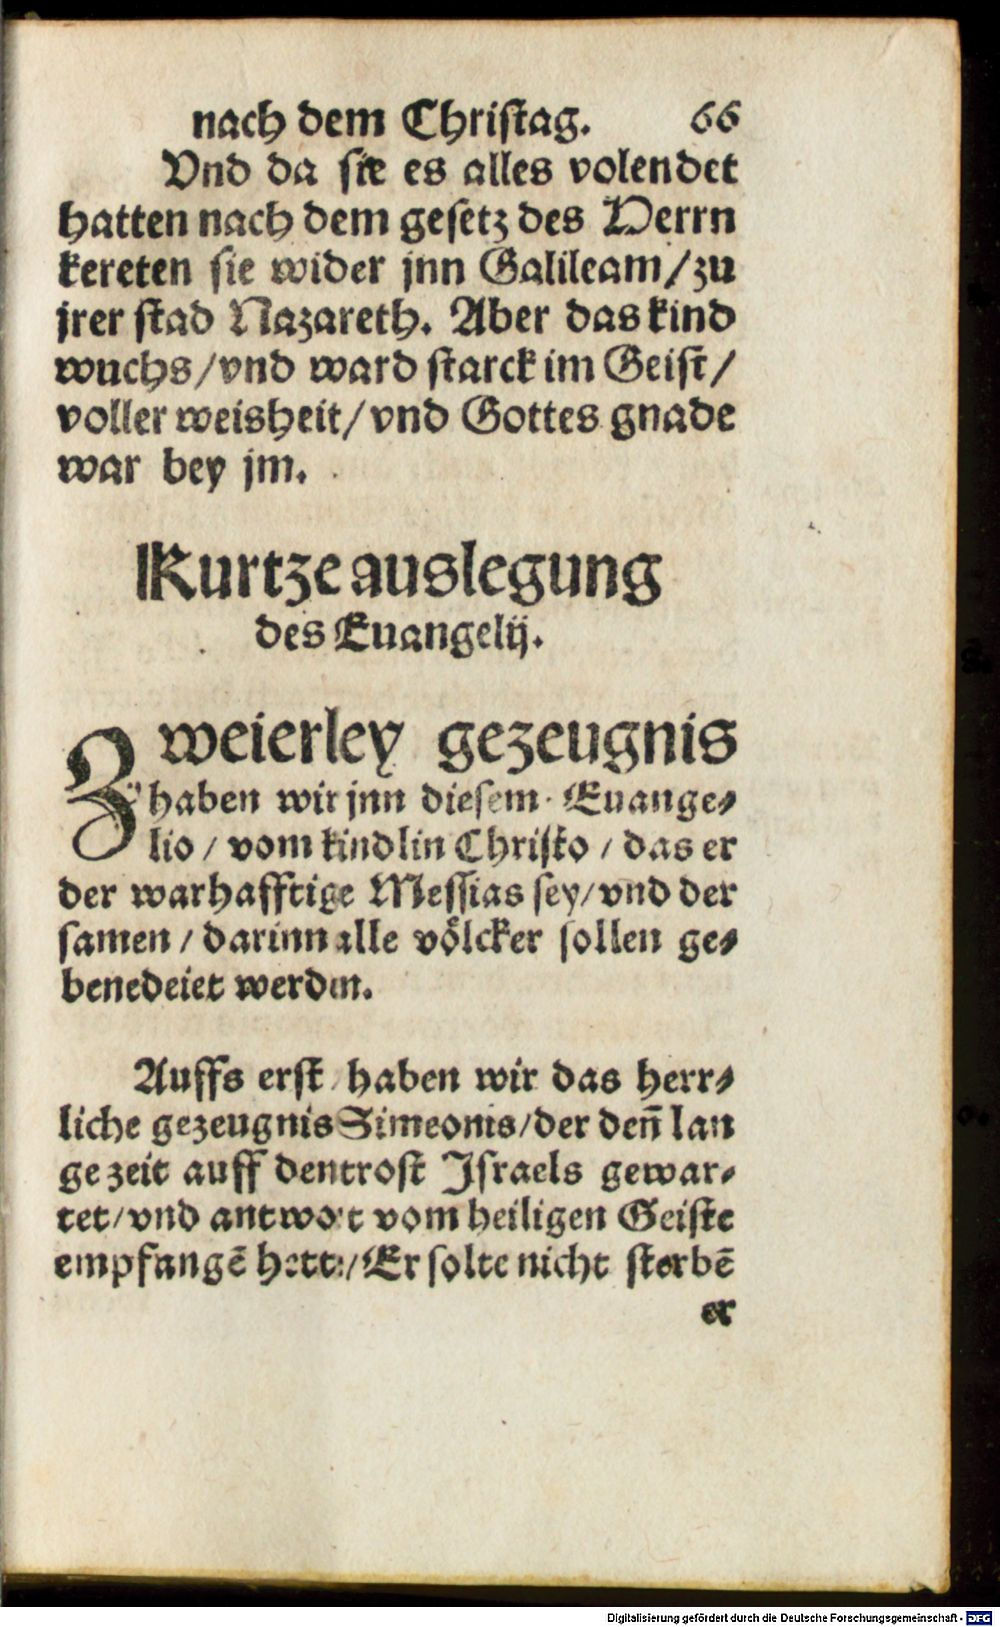 nach dem Christag. 66
Vnd da sie es alles volendet
hatten nach dem gesetz des HErrn
kereten sie wider jnn Galileam/zu
jrer stad Nazareth. Aber das kind
wuchs/vnd ward starck im Geist/
voller weisheit/vnd Gottes gnade
war bey jm.
Kurtze auslegung
des Euangelij.
Zweierley gezeugnis
haben wir jnn diesem Euange⸗
lio/vom kindlin Christo/das er
der warhafftige Messias sey/vnd der
samen/darinn alle völcker sollen ge⸗
benedeiet werden.
Auffs erst haben wir das herr⸗
liche gezeugnis Simeonis/der den̄ lan
ge zeit auff den trost Israels gewar⸗
tet/vnd antwort vom heiligen Geiste
empfangē hette/Er solte nicht sterbē
er
Digitalisierung gefördert durch die Deutsche Forschungsgemeinschaft - DFG